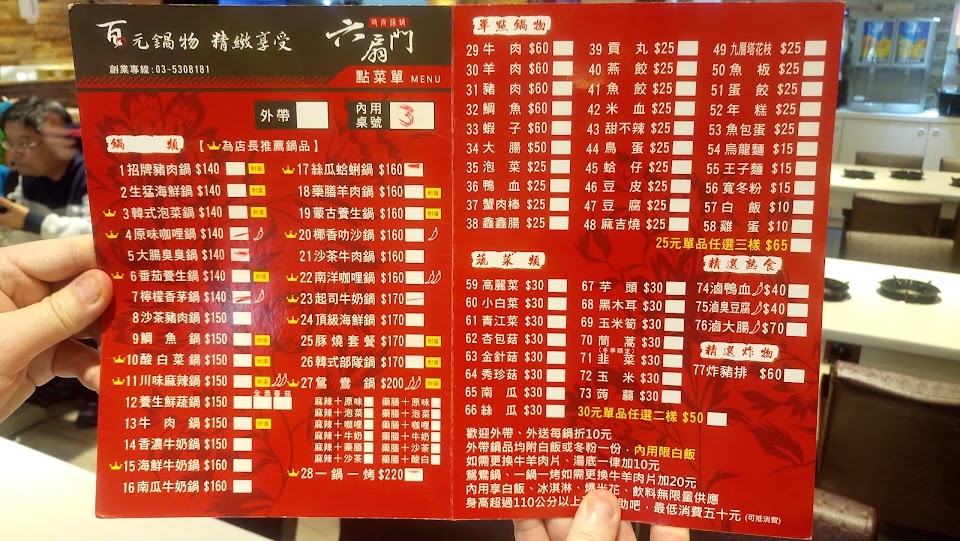 百元鍋物 精緻享受
創業專線:03-5308181
時尚湯鍋
六扇門
點菜單 MENU
外帶
內用桌號 3
鍋類 【為店長推薦鍋品】
1 招牌豬肉鍋 $140 附蛋
2 生猛海鮮鍋 $140 附蛋
3 韓式泡菜鍋 $140 附蛋
4 原味咖哩鍋 $140
5 大腸臭臭鍋 $140
6 番茄養生鍋 $140 附蛋
7 檸檬香茅鍋 $140
8 沙茶豬肉鍋 $150
9 鯛魚鍋 $150 附蛋
10 酸白菜鍋 $150 附蛋
11 川味麻辣鍋 $150 附蛋
12 養生鮮蔬鍋 $150
13 牛肉鍋 $150 附蛋
14 香濃牛奶鍋 $150
15 海鮮牛奶鍋 $160
16 南瓜牛奶鍋 $160
17 絲瓜蛤蜊鍋 $160
18 藥膳羊肉鍋 $160 附蛋
19 蒙古養生鍋 $160 附蛋
20 椰香叻沙鍋 $160
21 沙茶牛肉鍋 $160
22 南洋咖哩鍋 $160
23 起司牛奶鍋 $170
24 頂級海鮮鍋 $170
25 豚燒套餐 $170 附蛋
26 韓式部隊鍋 $170 附蛋
27 鴛鴦鍋 $200 附蛋
麻辣+原味 藥膳+原味
麻辣+泡菜 藥膳+泡菜
麻辣+咖哩 藥膳+咖哩
麻辣+牛奶 藥膳+牛奶
麻辣+藥膳 藥膳+沙茶
麻辣+沙茶 藥膳+酸白
28 一鍋一烤 $220
單點鍋物
29 牛肉 $60
30 羊肉 $60
31 豬肉 $60
32 鯛魚 $60
33 蝦子 $60
34 大腸 $50
35 泡菜 $25
36 鴨血 $25
37 蟹肉棒 $25
38 鑫鑫腸 $25
39 貢丸 $25
40 燕餃 $25
41 魚餃 $25
42 米血 $25
43 甜不辣 $25
44 鳥蛋 $25
45 蛤仔 $25
46 豆皮 $25
47 豆腐 $25
48 麻吉燒 $25
49 九層塔花枝 $25
50 魚板 $25
51 蛋餃 $25
52 年糕 $25
53 魚包蛋 $25
54 烏龍麵 $15
55 王子麵 $15
56 寬冬粉 $15
57 白飯 $10
58 雞蛋 $10
25元單品任選三樣 $65
蔬菜類
59 高麗菜 $30
60 小白菜 $30
61 青江菜 $30
62 杏包菇 $30
63 金針菇 $30
64 秀珍菇 $30
65 南瓜 $30
66 絲瓜 $30
67 芋頭 $30
68 黑木耳 $30
69 玉米筍 $30
70 茼蒿 $30
(冬季限定)
71 韭菜 $30
72 玉米 $30
73 蒟蒻 $30
30元單品任選二樣 $50
精選熟食
74 滷鴨血 $40
75 滷臭豆腐 $40
76 滷大腸 $70
精選炸物
77 炸豬排 $60
歡迎外帶、外送每鍋折10元
外帶鍋品均附白飯或冬粉一份，內用限白飯
如需更換牛羊肉片、湯底一律加10元
鴛鴦鍋、一鍋一烤如需更換牛羊肉片加20元
內用享白飯、冰淇淋、爆米花、飲料無限量供應
身高超過110公分以上 助吧，最低消費五十元 (可抵消費)